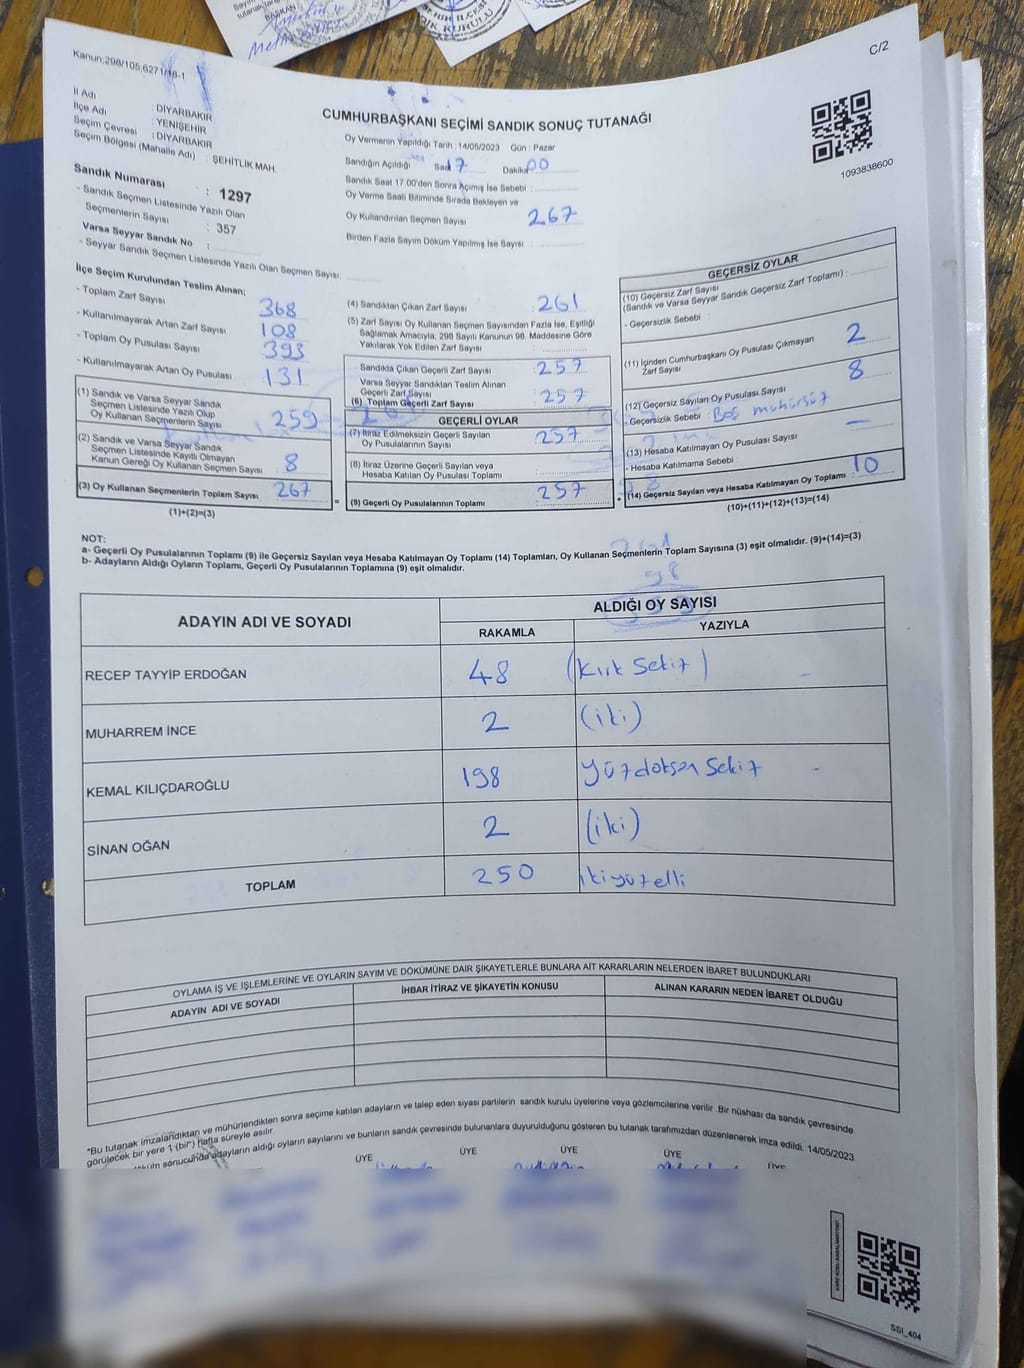 BAŞKAN
C/2
Kanun:298/105,6271/18-1
CUMHURBAŞKANI SEÇİMİ SANDIK SONUÇ TUTANAĞI
1093838600
İl Adı : DİYARBAKIR
İlçe Adı : YENİŞEHİR
Seçim Çevresi : DİYARBAKIR
Seçim Bölgesi (Mahalle Adı) : ŞEHİTLİK MAH.
Sandık Numarası : 1297
- Sandık Seçmen Listesinde Yazılı Olan
Seçmenlerin Sayısı : 357
Varsa Seyyar Sandık No :
- Seyyar Sandık Seçmen Listesinde Yazılı Olan Seçmen Sayısı
Oy Vermenin Yapıldığı Tarih : 14/05/2023 Gün : Pazar
Sandığın Açıldığı Saat 17 Dakika 00
Sandık Saat 17.00'den Sonra Açımış İse Sebebi :
Oy Verme Saati Bitiminde Sırada Bekleyen ve
Oy Kullandırılan Seçmen Sayısı 267
Birden Fazla Sayım Döküm Yapılmış İse Sayısı :
İlçe Seçim Kurulundan Teslim Alınan;
- Toplam Zarf Sayısı 368
- Kullanılmayarak Artan Zarf Sayısı 108
- Toplam Oy Pusulası Sayısı 393
- Kullanılmayarak Artan Oy Pusulası 131
(1) Sandık ve Varsa Seyyar Sandık
Seçmen Listesinde Yazılı Olup
Oy Kullanan Seçmenlerin Sayısı 259
(2) Sandık ve Varsa Seyyar Sandık
Seçmen Listesinde Kayıtlı Olmayan
Kanun Gereği Oy Kullanan Seçmen Sayısı 8
(3) Oy Kullanan Seçmenlerin Toplam Sayısı 267
(1)+(2)=(3)
(4) Sandıktan Çıkan Zarf Sayısı : 261
(5) Zarf Sayısı Oy Kullanan Seçmen Sayısından Fazla İse, Eşitliği
Sağlamak Amacıyla, 298 Sayılı Kanunun 98. Maddesine Göre
Yakılarak Yok Edilen Zarf Sayısı
Sandıkta Çıkan Geçerli Zarf Sayısı : 257
Varsa Seyyar Sandıktan Teslim Alınan
Geçerli Zarf Sayısı
(6) Toplam Geçerli Zarf Sayısı : 257
GEÇERLİ OYLAR
(7) İtiraz Edilmeksizin Geçerli Sayılan
Oy Pusulalarının Sayısı : 257
(8) İtiraz Üzerine Geçerli Sayılan veya
Hesaba Katılan Oy Pusulası Toplamı :
= (9) Geçerli Oy Pusulalarının Toplamı : 257
GEÇERSİZ OYLAR
(10) Geçersiz Zarf Sayısı
(Sandık ve Varsa Seyyar Sandık Geçersiz Zarf Toplamı) :
- Geçersizlik Sebebi :
(11) İçinden Cumhurbaşkanı Oy Pusulası Çıkmayan
Zarf Sayısı 2
(12) Geçersiz Sayılan Oy Pusulası Sayısı 8
- Geçersizlik Sebebi : Boş mühürsüz
(13) Hesaba Katılmayan Oy Pusulası Sayısı —
- Hesaba Katılmama Sebebi :
(14) Geçersiz Sayılan veya Hesaba Katılmayan Oy Toplamı : 10
(10)+(11)+(12)+(13)=(14)
NOT:
a- Geçerli Oy Pusulalarının Toplamı (9) ile Geçersiz Sayılan veya Hesaba Katılmayan Oy Toplamı (14) Toplamları, Oy Kullanan Seçmenlerin Toplam Sayısına (3) eşit olmalıdır. (9)+(14)=(3)
b- Adayların Aldığı Oyların Toplamı, Geçerli Oy Pusulalarının Toplamına (9) eşit olmalıdır.
ADAYIN ADI VE SOYADI
ALDIĞI OY SAYISI
RAKAMLA YAZIYLA
RECEP TAYYİP ERDOĞAN 48 (kırk sekiz)
MUHARREM İNCE 2 (iki)
KEMAL KILIÇDAROĞLU 198 yüzdoksan sekiz
SİNAN OĞAN 2 (iki)
TOPLAM 250 ikiyüzelli
OYLAMA İŞ VE İŞLEMLERİNE VE OYLARIN SAYIM VE DÖKÜMÜNE DAİR ŞİKAYETLERLE BUNLARA AİT KARARLARIN NELERDEN İBARET BULUNDUKLARI
ADAYIN ADI VE SOYADI İHBAR İTİRAZ VE ŞİKAYETİN KONUSU ALINAN KARARIN NEDEN İBARET OLDUĞU
"Bu tutanak imzalandıktan ve mühürlendikten sonra seçime katılan adayların ve talep eden siyasi partilerin sandık kurulu üyelerine veya gözlemcilerine verilir .Bir nüshası da sandık çevresinde
görülecek bir yere 1 (bir") hafta süreyle asılır.
döküm sonucunda adayların aldığı oyların sayılarını ve bunların sandık çevresinde bulunanlara duyurulduğunu gösteren bu tutanak tarafımızdan düzenlenerek imza edildi. 14/05/2023
ÜYE ÜYE ÜYE ÜYE ÜYE
SSI_404